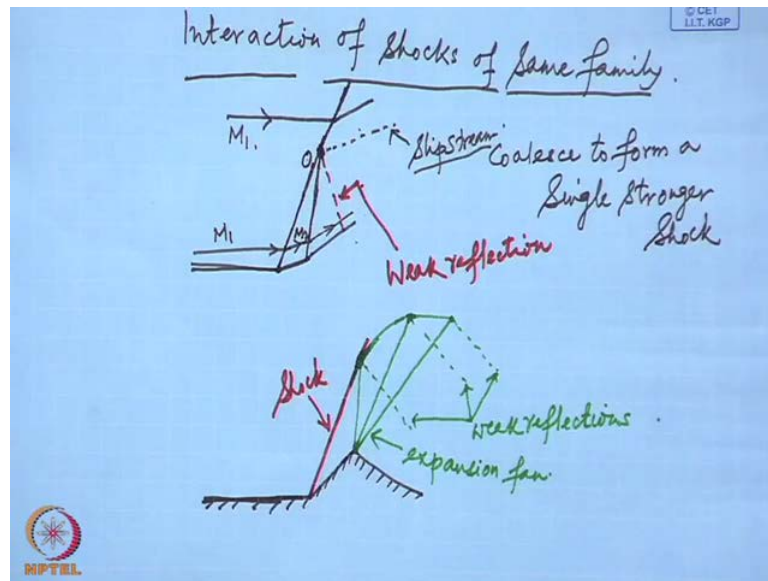 © CET
I.I.T. KGP
Interaction of Shocks of Same family.
M1.
O
Slipstream
Coalesce to form a
Single Stronger
Shock
M1
M2
Weak reflection
Shock
weak reflections
expansion fan.
NPTEL